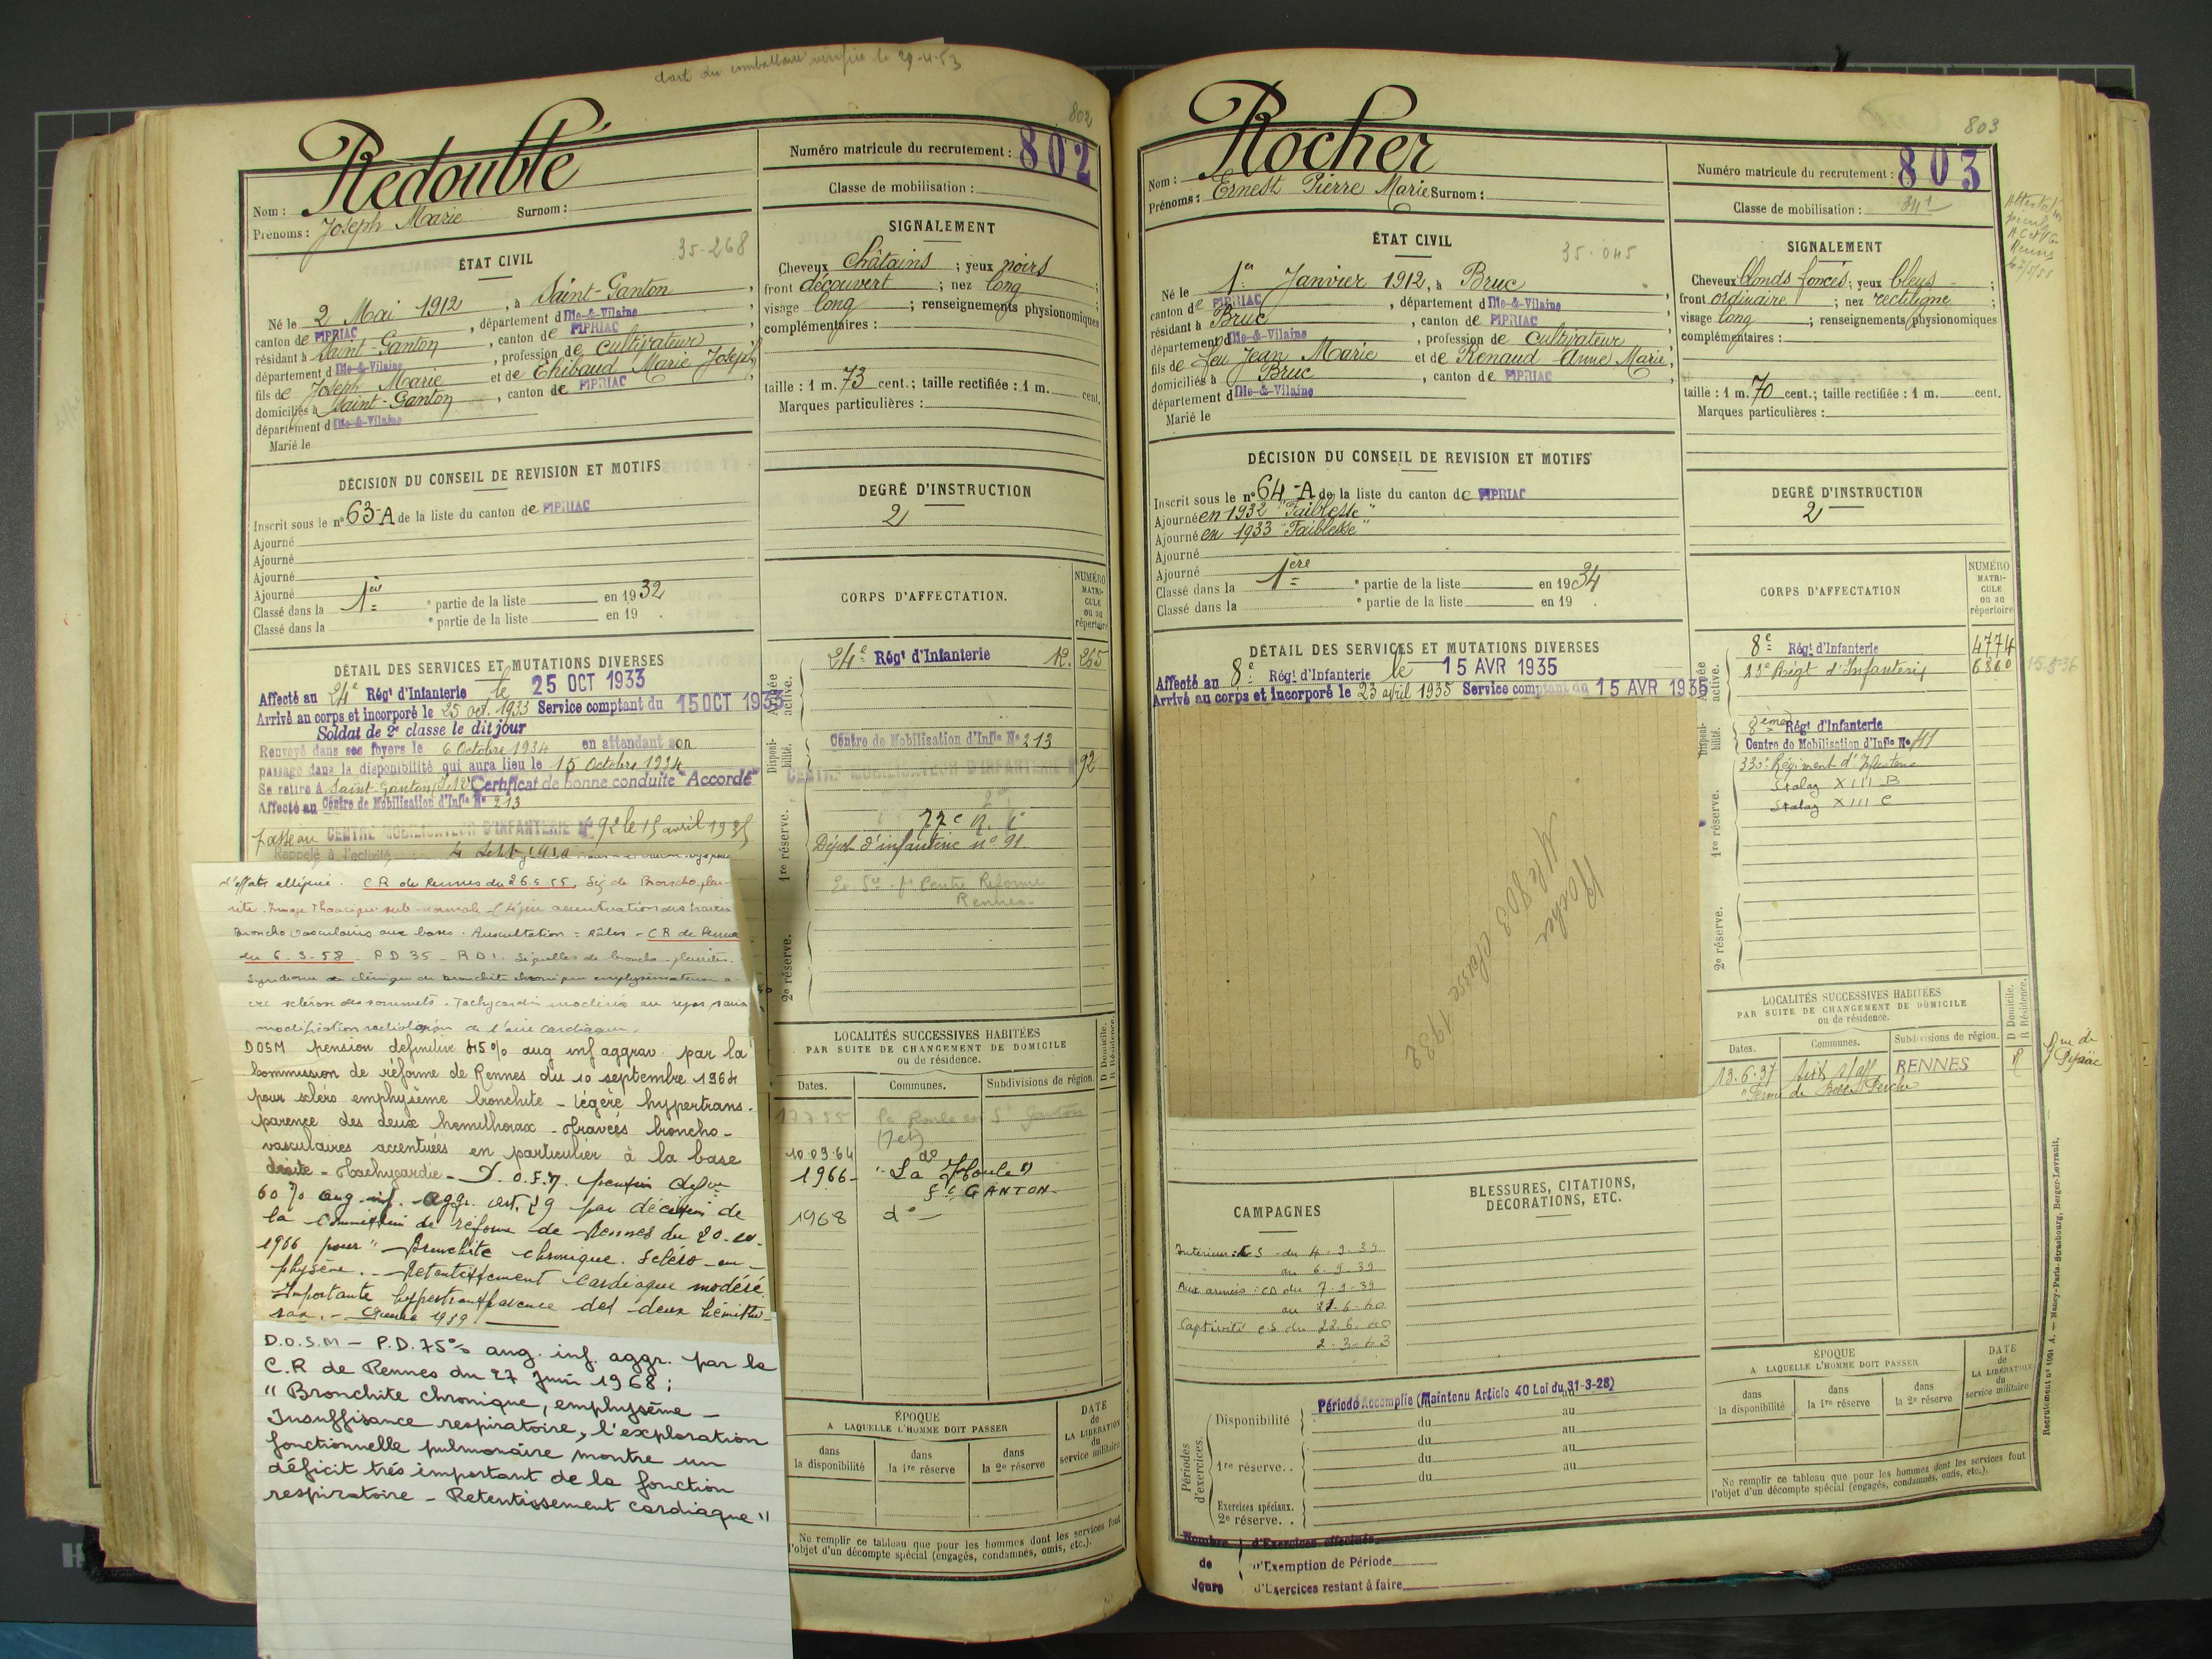 carte du combattant vérifié le 29-4-53
802
Redoublé
Nom :
Prénoms : Joseph Marie Surnom :
Numéro matricule du recrutement : 802
Classe de mobilisation :
ÉTAT CIVIL
35-268
Né le 2 Mai 1912, à Saint-Ganton,
canton de PIPRIAC, département d'Ille-&-Vilaine
résidant à Saint-Ganton, canton de PIPRIAC
département d'Ille-&-Vilaine, profession de cultivateur
fils de Joseph Marie et de Thibaud Marie Joseph,
domiciliés à Saint-Ganton, canton de PIPRIAC,
département d'Ille-&-Vilaine
Marié le
SIGNALEMENT
Cheveux châtains ; yeux noirs
front découvert ; nez long ;
visage long ; renseignements physionomiques
complémentaires :
taille : 1 m. 73 cent. ; taille rectifiée : 1 m. cent.
Marques particulières :
DÉCISION DU CONSEIL DE REVISION ET MOTIFS
Inscrit sous le n° 63-A de la liste du canton de PIPRIAC
Ajourné
Ajourné
Ajourné
Ajourné
Classé dans la 1ère partie de la liste en 1932
Classé dans la e partie de la liste en 19 .
DEGRÉ D'INSTRUCTION
2
DÉTAIL DES SERVICES ET MUTATIONS DIVERSES
Affecté au 24e Régt d'Infanterie le 25 OCT 1933
Arrivé au corps et incorporé le 25 oct. 1933 Service comptant du 15 OCT 1933
Soldat de 2e classe le dit jour
Renvoyé dans ses foyers le 6 Octobre 1934 en attendant son
passage dans la disponibilité qui aura lieu le 15 Octobre 1934
Se retire à Saint-Ganton Certificat de bonne conduite "Accordé"
Affecté au Centre de Mobilisation d'Infie N° 213
Passé au CENTRE MOBILISATEUR D'INFANTERIE N° 92 le 15 avril 1935
Rappelé à l'activité
d'effets allégués. CR de Rennes du 26.5.55, Séq de Broncho pleu-
rite. Image Thoracique sub-normale (légère accentuation des traces
broncho vasculaires aux bases. Auscultation : Râles - CR de Rennes
du 6-3-58. PD 35 - RD1. Séquelles de broncho-pleurites.
Syndrome clinique de bronchite chronique emphysémateuse a-
vec sclérose des sommets. Tachycardie modérée au repos sans
modification radiologique de l'aire cardiaque.
DOSM pension définitive 45% aug inf aggrav. par la
Commission de réforme de Rennes du 10 septembre 1964
pour scléro emphysème bronchite - légère hypertrans-
parence des deux hémithorax - travées broncho-
vasculaires accentuées en particulier à la base
droite - tachycardie - D.O.S.M. pension défve
60% aug. inf. aggr. art. 29 par décision de
la Commission de réforme de Rennes du 20-10-
1966 pour "Bronchite chronique. Scléro-em-
physème. - Retentissement cardiaque modéré.
Importante hypertransparence des deux hémitho-
rax. - 1939
D.O.S.M - P.D. 75% aug. inf. aggr. par la
C.R de Rennes du 27 Juin 1968 ;
" Bronchite chronique, emphysème -
Insuffisance respiratoire, l'exploration
fonctionnelle pulmonaire montre un
déficit très important de la fonction
respiratoire - Retentissement cardiaque "
CORPS D'AFFECTATION.
NUMÉRO MATRI-CULE ou au répertoire
Armée active.
24e Régt d'Infanterie 12.265
Disponi-bilité.
Centre de Mobilisation d'Infie N° 213
CENTRE MOBILISATEUR D'INFANTERIE N° 92
1re réserve.
77e R. I
Dépôt d'infanterie n° 91.
Centre Réforme
Rennes-
2e réserve.
LOCALITÉS SUCCESSIVES HABITÉES
PAR SUITE DE CHANGEMENT DE DOMICILE
ou de résidence.
Dates. Communes. Subdivisions de région. D Domicile. R Résidence.
10.09.64 do
1966- "La Houle"
St GANTON-
1968 do -
ÉPOQUE
A LAQUELLE L'HOMME DOIT PASSER
dans la disponibilité
dans la 1re réserve
dans la 2e réserve
DATE de LA LIBÉRATION du service militaire
Ne remplir ce tableau que pour les hommes dont les services font
l'objet d'un décompte spécial (engagés, condamnés, omis, etc.).
803
Rocher
Nom :
Prénoms : Ernest Pierre Marie Surnom :
Numéro matricule du recrutement : 803
Classe de mobilisation : 34
ÉTAT CIVIL
35-045
Né le 1er Janvier 1912, à Bruc,
canton de PIPRIAC, département d'Ille-&-Vilaine
résidant à Bruc, canton de PIPRIAC
département d'Ille-&-Vilaine, profession de cultivateur
fils de feu Jean Marie et de Renaud Anne Marie,
domiciliés à Bruc, canton de PIPRIAC,
département d'Ille-&-Vilaine
Marié le
SIGNALEMENT
Cheveux blonds foncés ; yeux bleus ;
front ordinaire ; nez rectiligne ;
visage long ; renseignements physionomiques
complémentaires :
taille : 1 m. 70 cent. ; taille rectifiée : 1 m. cent.
Marques particulières :
DÉCISION DU CONSEIL DE REVISION ET MOTIFS
Inscrit sous le n° 64-A de la liste du canton de PIPRIAC
Ajourné en 1932 "Faiblesse"
Ajourné en 1933 "Faiblesse"
Ajourné
Ajourné
Classé dans la 1ère partie de la liste en 1934
Classé dans la e partie de la liste en 19 .
DEGRÉ D'INSTRUCTION
2
DÉTAIL DES SERVICES ET MUTATIONS DIVERSES
Affecté au 8e Régt d'Infanterie le 15 AVR 1935
Arrivé au corps et incorporé le 23 avril 1935 Service comptant du 15 AVR 1935
Rocher
Mle 803 classe 1932
CORPS D'AFFECTATION
NUMÉRO MATRI-CULE ou au répertoire
Armée active.
8e Régt d'Infanterie 4774
23e Régt d'Infanterie 6860 15-5-36
Disponi-bilité.
8ème Régt d'Infanterie
Centre de Mobilisation d'Infie N° 41
1re réserve.
330e Régiment d'Infanterie
Stalag XIII B
Stalag XIII C
2e réserve.
LOCALITÉS SUCCESSIVES HABITÉES
PAR SUITE DE CHANGEMENT DE DOMICILE
ou de résidence.
Dates. Communes. Subdivisions de région. D Domicile. R Résidence.
13.6.37 RENNES R
"Ferme de
CAMPAGNES
Intérieur : CS du 4-9-39
au 6-9-39
Aux armées : CD du 7-9-39
au 21-6-40
Captivité CS du 22.6.40
2-3-43
BLESSURES, CITATIONS,
DÉCORATIONS, ETC.
Périodes d'exercices.
Disponibilité
Période Accomplie (Maintenu Article 40 Loi du 31-3-28)
du au
du au
1re réserve. . du au
du au
Exercices spéciaux.
2e réserve. .
Nombre de Jours
d'Exercices effectués
d'Exemption de Période
d'Exercices restant à faire
ÉPOQUE
A LAQUELLE L'HOMME DOIT PASSER
dans la disponibilité
dans la 1re réserve
dans la 2e réserve
DATE de LA LIBÉRATION du service militaire
Ne remplir ce tableau que pour les hommes dont les services font
l'objet d'un décompte spécial (engagés, condamnés, omis, etc.).
Recrutement n° 1001 A. — Nancy-Paris-Strasbourg, Berger-Levrault.